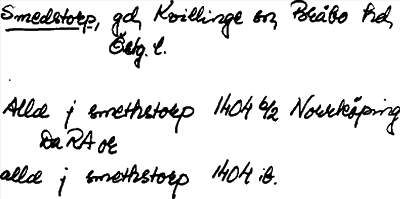 Smedstorp, gd, Kvillinge sn, Bråbo hd,
Östg. l.
Alld j smethstorp 1404 6/2 Norrköping
Da RA or
alld j smethstorp 1404 ib.